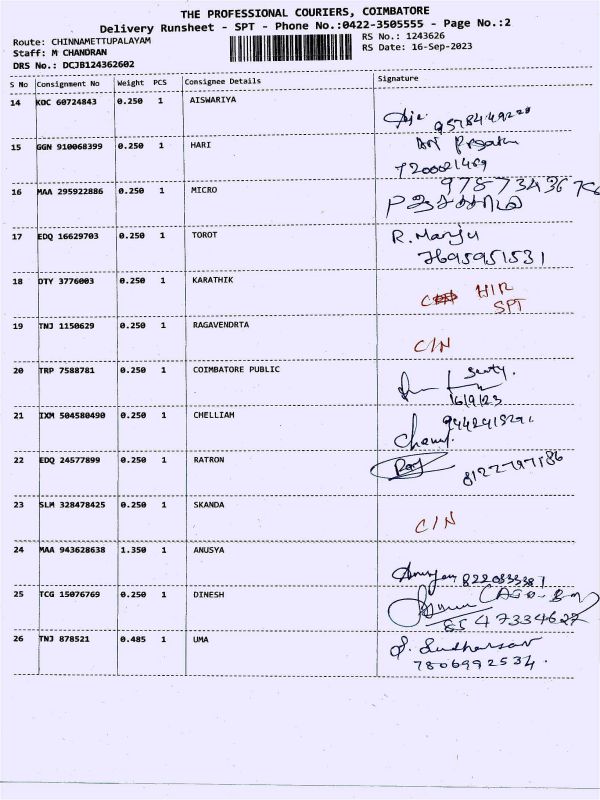 THE PROFESSIONAL COURIERS, COIMBATORE
Delivery Runsheet - SPT - Phone No.:0422-3505555 - Page No.:2
Route: CHINNAMETTUPALAYAM
Staff: M CHANDRAN
DRS No.: DCJB124362602
RS No.: 1243626
RS Date: 16-Sep-2023
S No Consignment No Weight PCS Consignee Details Signature
14 KOC 60724843 0.250 1 AISWARIYA
15 GGN 910068399 0.250 1 HARI
7200021489
16 MAA 295922886 0.250 1 MICRO
17 EDQ 16629703 0.250 1 TOROT R. Manju
7695951531
18 DTY 3776003 0.250 1 KARATHIK
HIR
SPT
19 TNJ 1150629 0.250 1 RAGAVENDRTA
C/N
20 TRP 7588781 0.250 1 COIMBATORE PUBLIC
16/9/23
21 IXM 504580490 0.250 1 CHELLIAH
22 EDQ 24577899 0.250 1 RATRON
23 SLM 328478425 0.250 1 SKANDA
C/N
24 MAA 943628638 1.350 1 ANUSYA
25 TCG 15076769 0.250 1 DINESH
8547334627
26 TNJ 878521 0.485 1 UMA
7806992534.